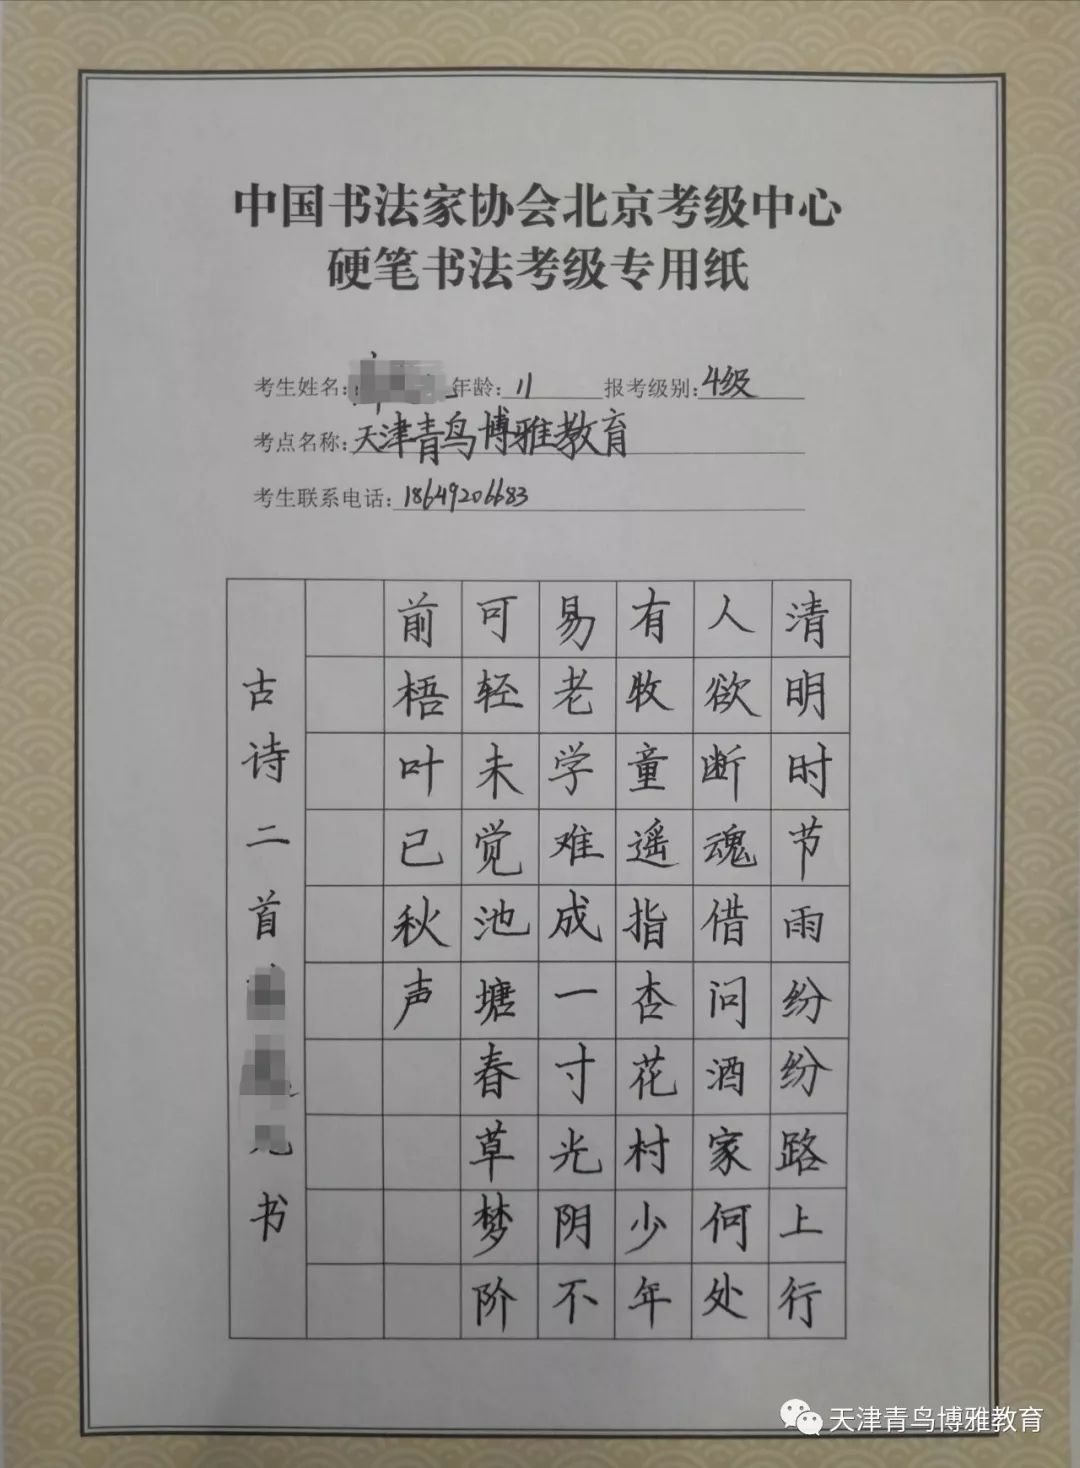 中国书法家协会北京考级中心
硬笔书法考级专用纸
考生姓名: 年龄: 11 报考级别: 4级
考点名称: 天津青鸟博雅教育
考生联系电话: 18649206683
清明时节雨纷纷路上行
人欲断魂借问酒家何处
有牧童遥指杏花村少年
易老学难成一寸光阴不
可轻未觉池塘春草梦阶
前梧叶已秋声
古诗二首 书
天津青鸟博雅教育